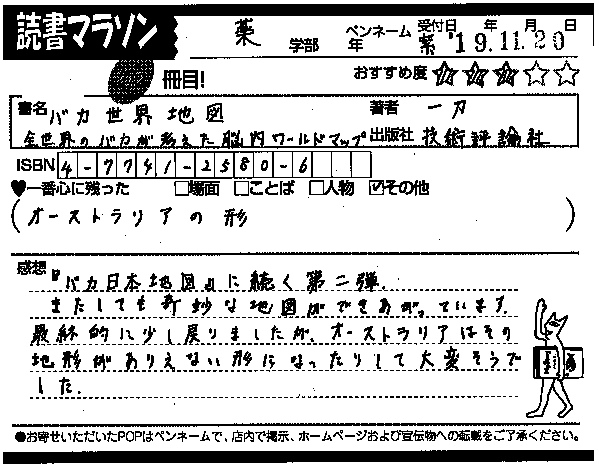 読書マラソン
薬 学部 年 ペンネーム 紫 受付日 '19年11月20日
冊目! おすすめ度 ★★★☆☆
書名 バカ世界地図 著者 一刀
全世界のバカが考えた脳内ワールドマップ 出版社 技術評論社
ISBN 4-7741-2580-6
♥一番心に残った □場面 □ことば □人物 ☑その他
(オーストラリアの形)
感想 『バカ日本地図』に続く第二弾.
またしても奇妙な地図ができあがっています.
最終的に少し戻りましたが、オーストラリアはその
地形がありえない形になったりして大変そうで
した.
●お寄せいただいたPOPはペンネームで、店内で掲示、ホームページおよび宣伝物への転載をご了承ください。